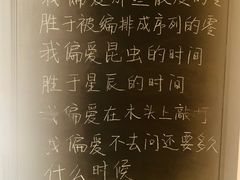 我偏爱那些散漫的零
胜于被编排成序列的零
我偏爱昆虫的时间
胜于星辰的时间
我偏爱在木头上敲打
我偏爱不去问还要多久
什么时候